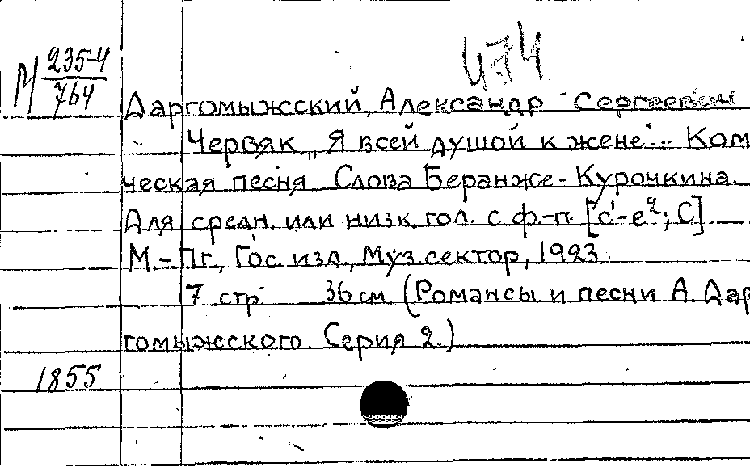 474
М 235-4
764
Даргомыжский, Александр Сергеевич
Червяк „Я всей душой к жене"... Ком
ческая песня Слова Беранже-Курочкина.
Для средн. или низк. гол. с ф.-п. [c'-e²; C]
М.-Пг., Гос. изд., Муз. сектор, 1923
7 стр 36 см (Романсы и песни А. Дар
гомыжского Серия 2.)
1855